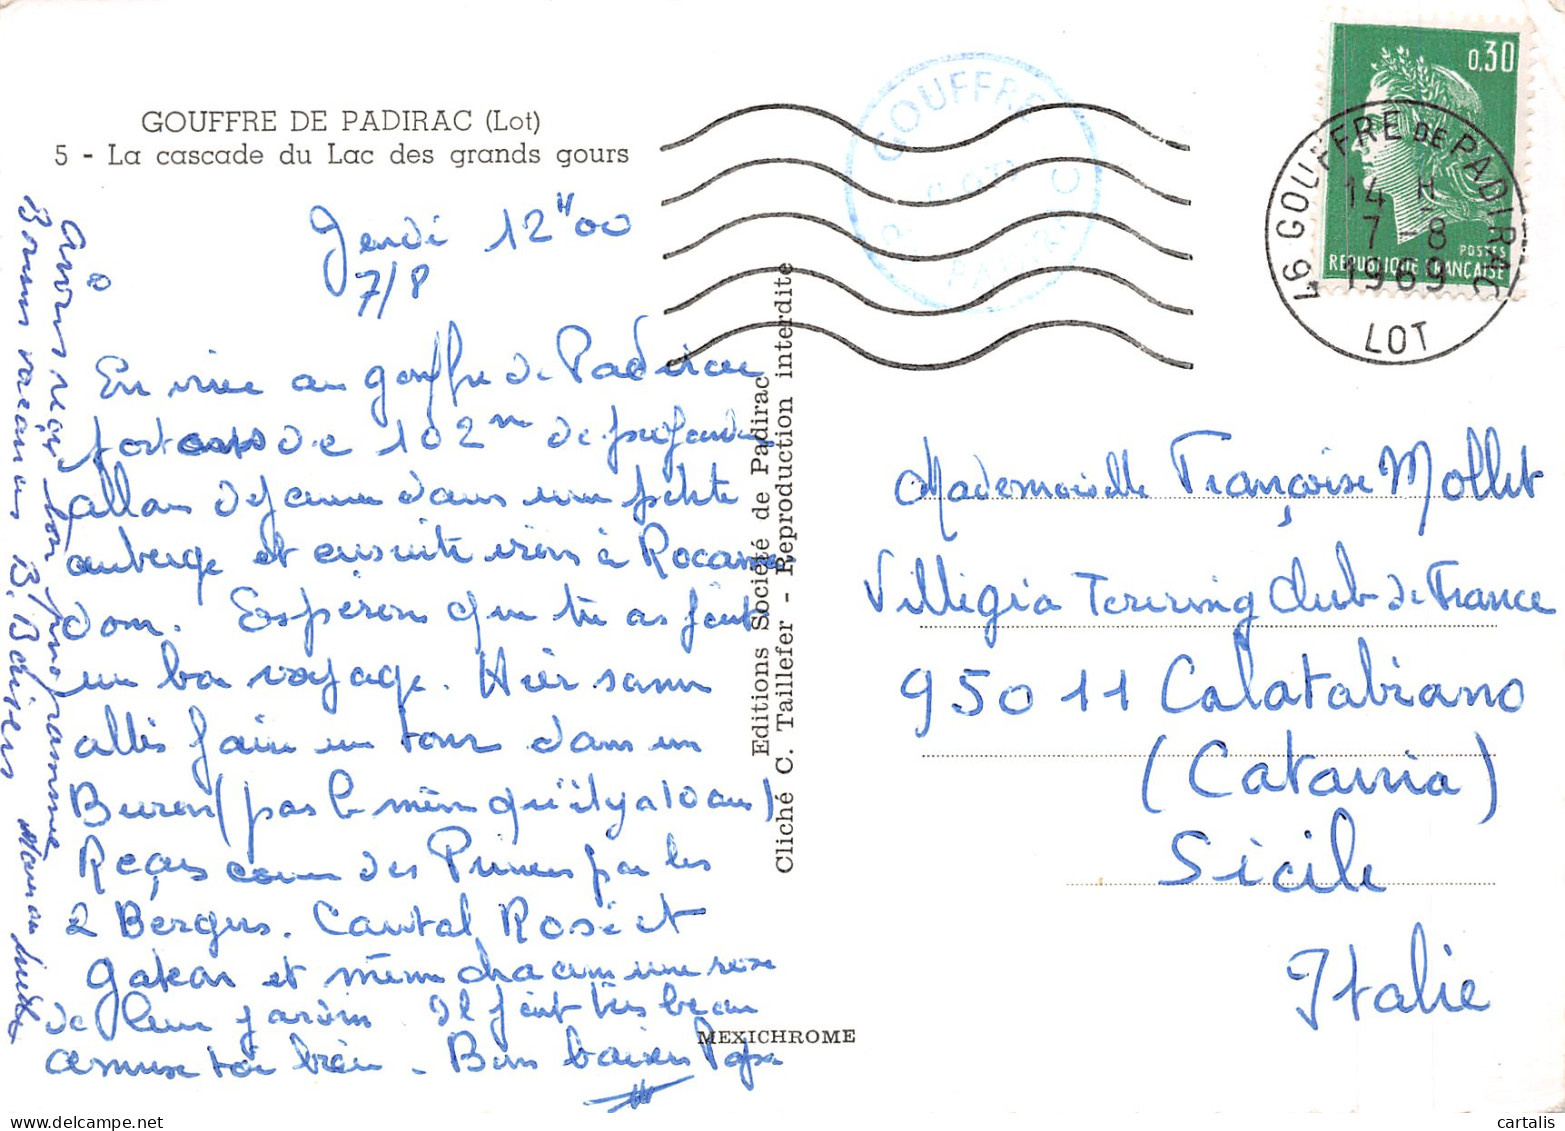 GOUFFRE DE PADIRAC (Lot)
5 - La cascade du Lac des grands gours
Jeudi 12H00
7/8
En visite au gouffre de Padirac
de 102m de profondeur
allons déjeuner dans une petite
auberge et ensuite irons à Rocama
dour. Espérons que tu as fait
un bon voyage. Hier sommes
allés faire un tour dans un
Buron (pas le même qu'il y a 10 ans)
Reçus comme des Princes par les
2 Bergers. Cantal Rosé et
gateau et même chacun une rose
de leur jardin Il fait très beau
amuse toi bien - Bons baisers Papa
avons reçu ton programme
Bonnes vacances B. Baisers Maman
Editions Société de Padirac
Cliché C. Taillefer - Reproduction interdite
MEXICHROME
GOUFFRE
PADIRAC
0,30
POSTES
REPUBLIQUE FRANÇAISE
46 GOUFFRE DE PADIRAC
14 H
7 - 8
1969
LOT
Mademoiselle Françoise Mollet
Villigia Touring Club de France
95011 Calatabiano
(Catania)
Sicile
Italie
cartalis